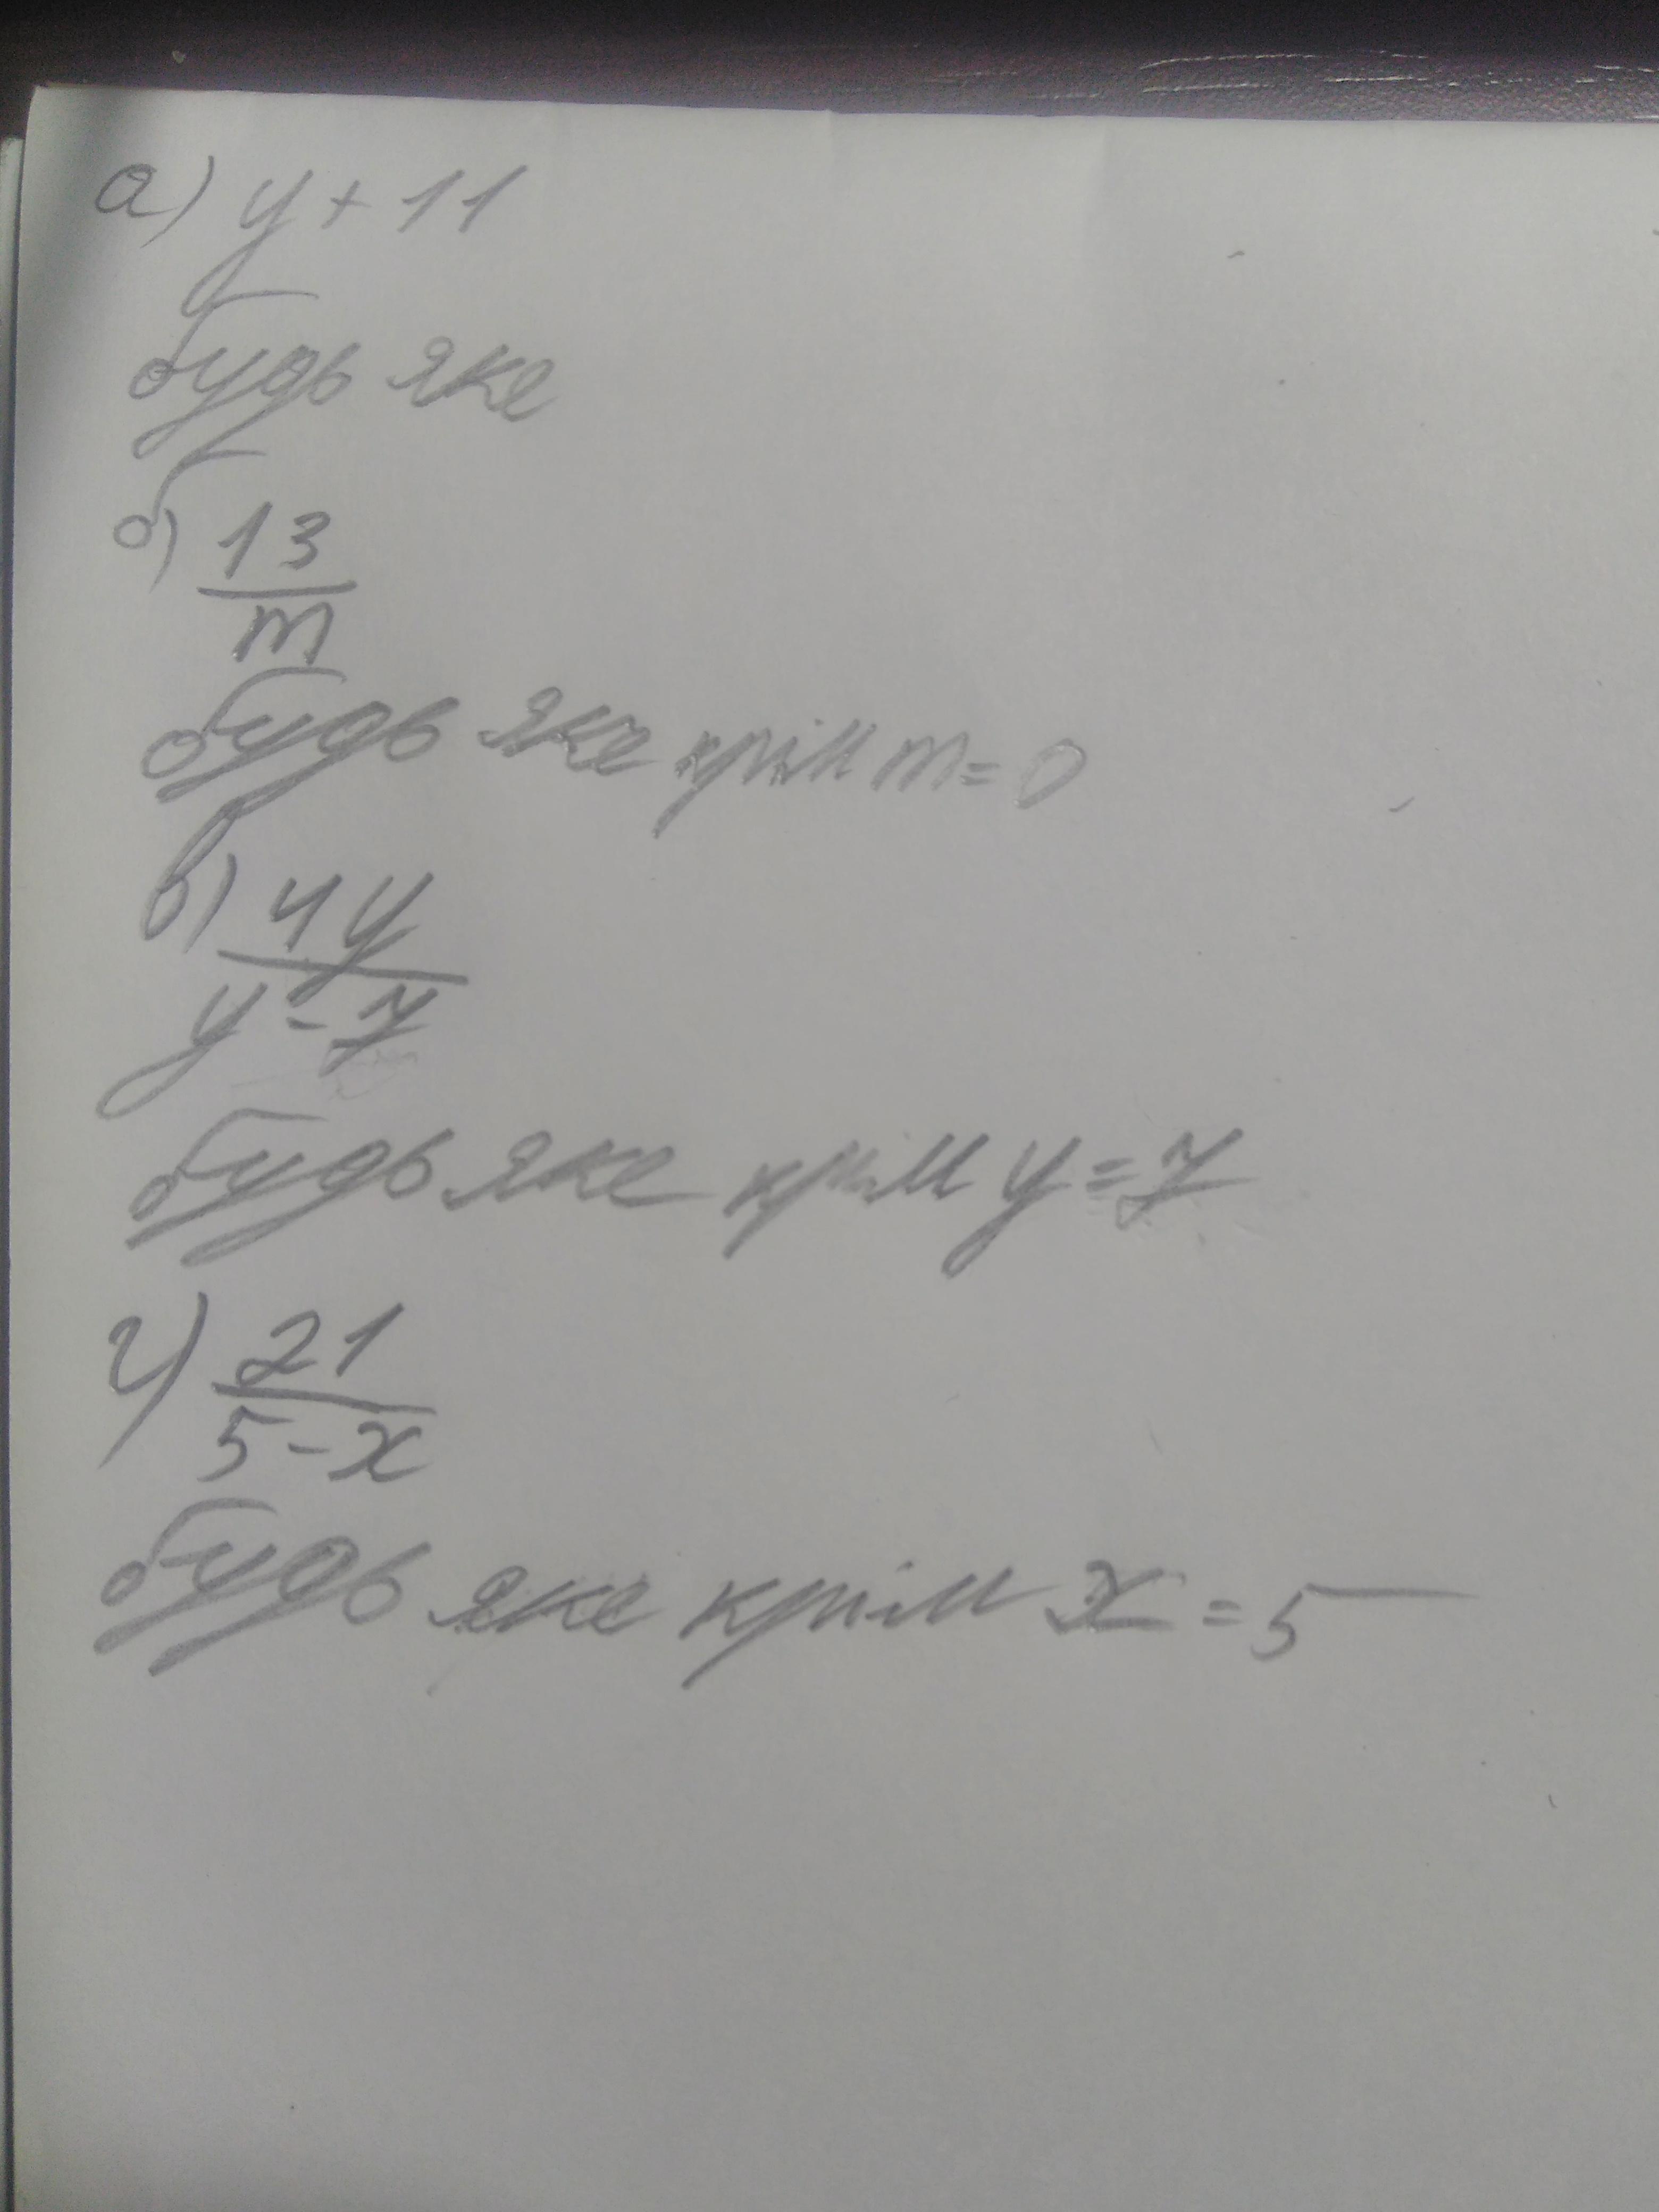 а) y + 11
будь яке
б) 13
m
будь яке крім m = 0
в) 4y
y - 7
будь яке крім y = 7
г) 21
5 - x
будь яке крім x = 5